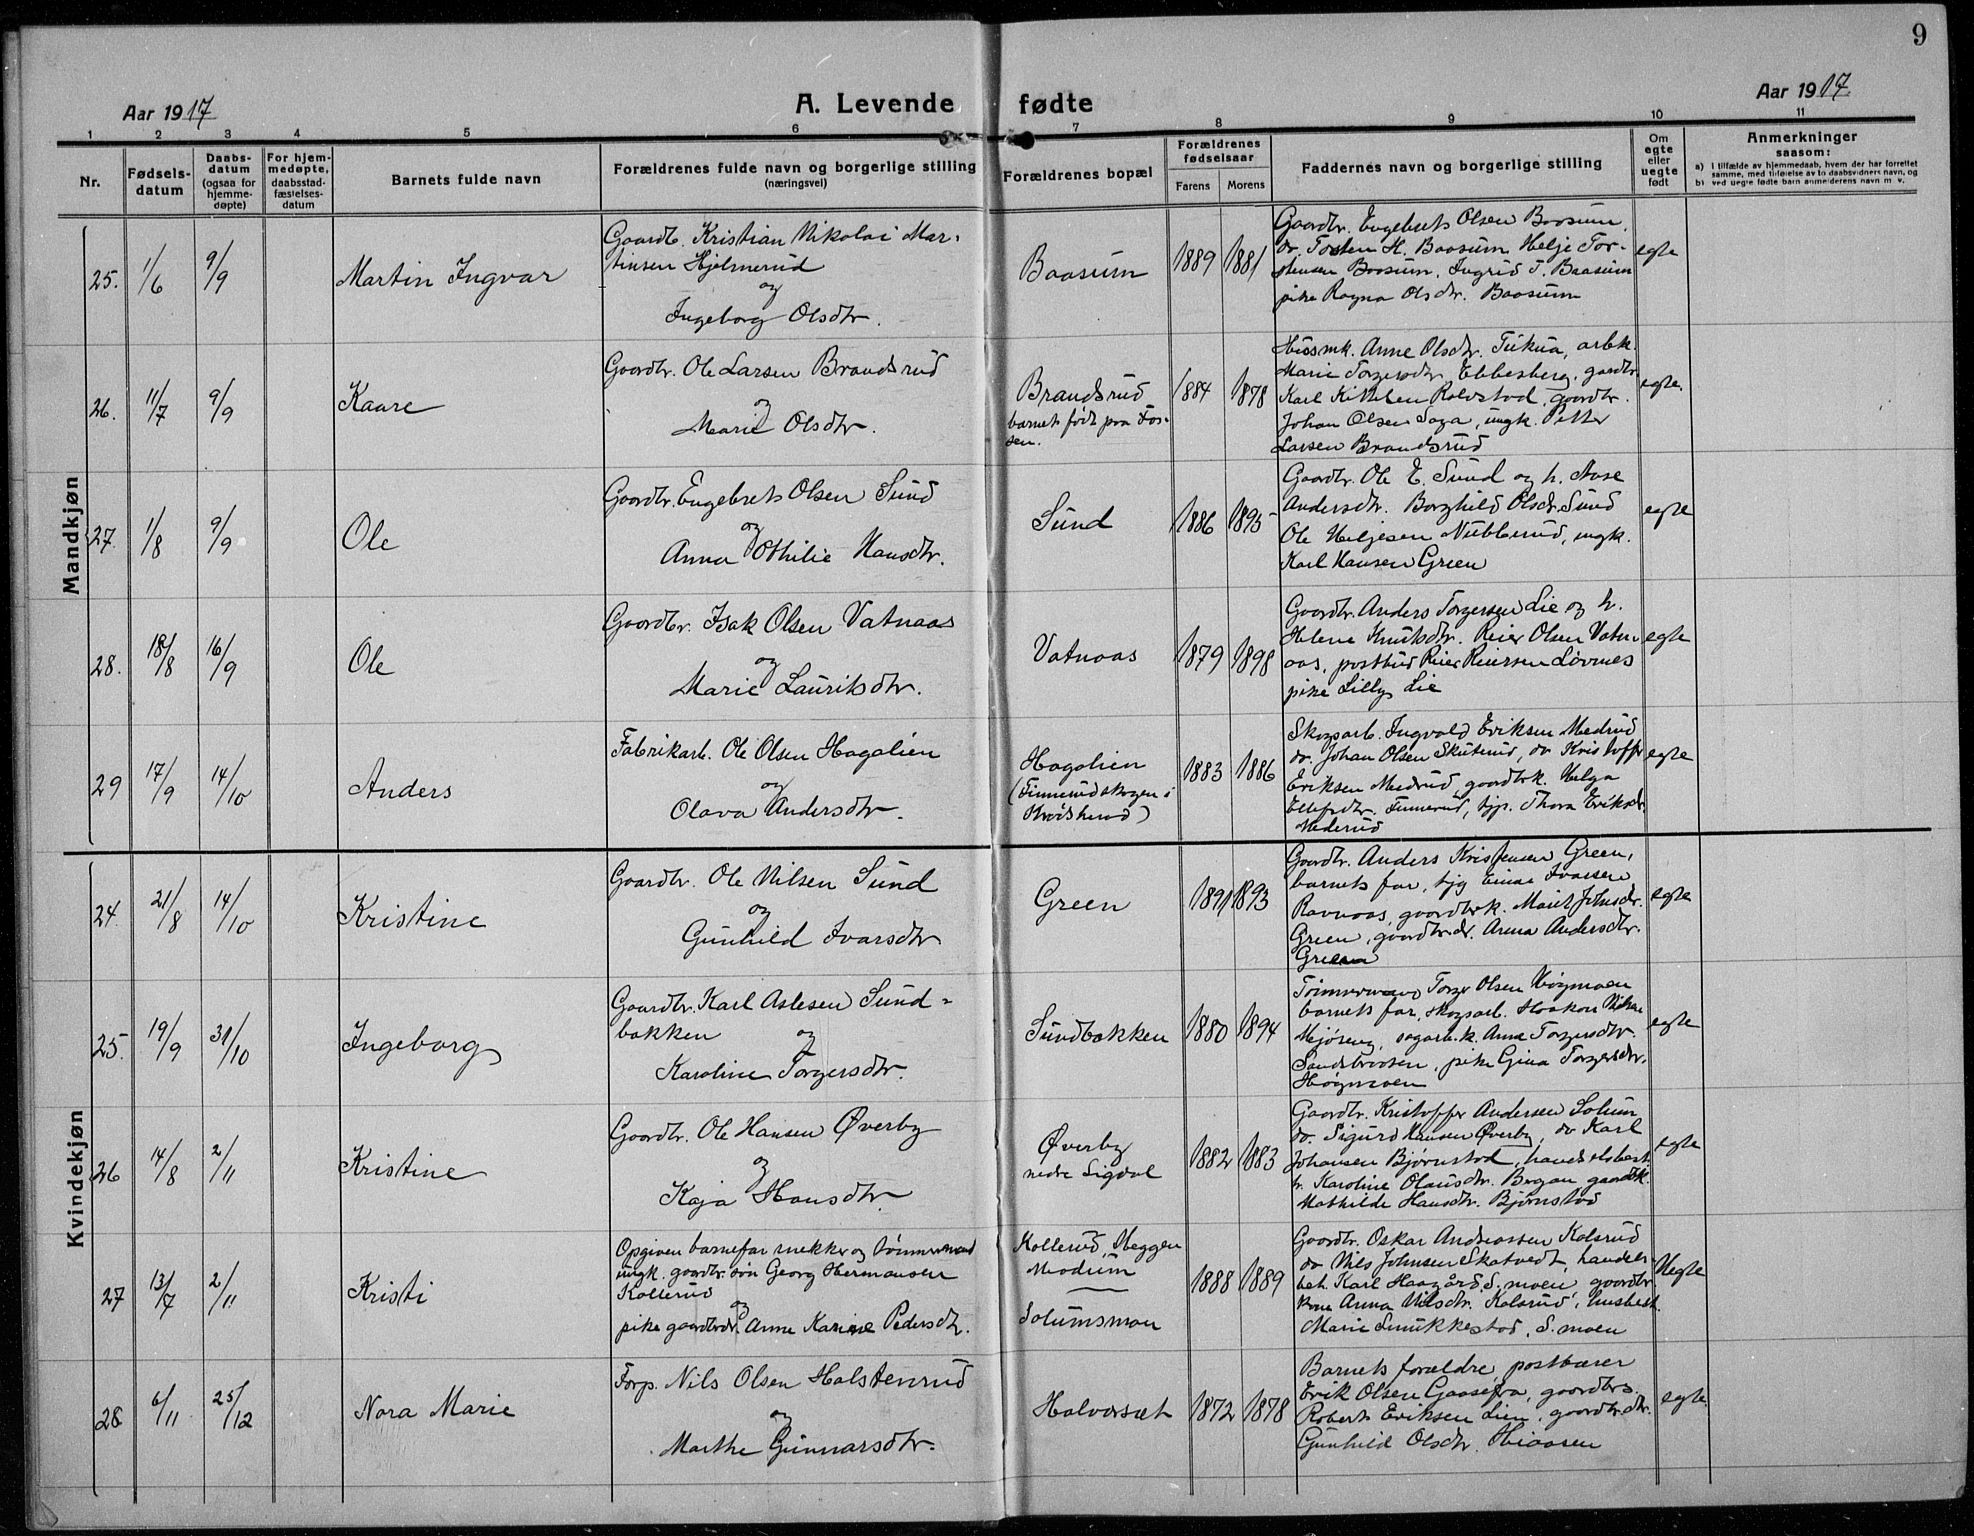 9
Aar 1917
A. Levende fødte
Aar 1917
1 2 3 4 5 6 7 8 9 10 11
Nr.
Fødsels-
datum
Daabs-
datum
(ogsaa for
hjemme-
døpte)
For hjem-
medøpte,
daabsstad-
fæstelses-
datum
Barnets fulde navn
Forældrenes fulde navn og borgerlige stilling
(næringsvei)
Forældrenes bopæl
Forældrenes
fødselsaar
Farens
Morens
Faddernes navn og borgerlige stilling
Om
egte
eller
uegte
født
Anmerkninger
saasom:
a) I tilfælde av hjemmedaab, hvem der har forrettet
samme, med tilføielse av to daabsvidners navn, og
b) ved uegte fødte barn anmelderens navn m. v.
Mandkjøn
25. 1/6 9/9 Martin Ingvar
Gaardb. Kristian Nikolai Mar-
tinsen Hjelmerud
og
Ingeborg Olsdtr.
Baasum 1889 1881
Gaardbr. Engebret Olsen Baasum,
do. Tosten H. Baasum, Helje Tor-
stensen Baasum, Ingrid T. Baasum
pike Ragna Olsdtr. Baasum
egte
26. 11/7 9/9 Kaare
Gaardbr. Ole Larsen Brandsrud
og
Marie Olsdtr.
Brandsrud
barnet født paa Fos-
sen.
1884 1878
Husmk. Anne Olsdtr. arbk.
Marie Torgersdtr. Ebbesberg, gaardbr.
Karl Kittilsen Rolvstad, gaardbr.
Johan Olsen Saga, ungk. Petter
Larsen Brandsrud
egte
27. 1/8 9/9 Ole
Gaardbr. Engebret Olsen Sund
og
Anna Othilie Hansdtr.
Sund 1886 1895
Gaardbr. Ole E. Sund og h. Aase
Andersdtr. Borghild Olsdr. Sund
Ole Heljesen Nubberud, ungk.
Karl Hansen Green
egte
28. 18/8 16/9 Ole
Gaardbr. Isak Olsen Vatnaas
og
Marie Lauritsdtr.
Vatnaas 1879 1898
Gaardbr. Anders Torgersen Lie og h.
Helene Knutsdtr. Reier Olsen Vatn-
aas, postbud Reier Reiersen Løvnes
pike Lilly Lie
egte
29 17/9 14/10 Anders
Fabrikarb. Ole Olsen Hagalien
og
Olava Andersdtr.
Hagalien
(Finnerudskogen i
Krødsherad)
1883 1886
Skogsarb. Ingvald Eriksen Mederud
do. Johan Olsen Skuterud, do Kristoffer
Eriksen Mederud, gaardbrk. Helga
Ellefsdtr. Finnerud, tjp. Thora Eriksdr.
Mederud
egte
Kvindekjøn
24. 21/8 14/10 Kristine
Gaardbr. Ole Nilsen Sund
og
Gunhild Ivarsdtr
Green 1891 1893
Gaardbr. Anders Kristensen Green,
barnets far, tjg Einar Ivarsen
Ravnaas, gaardbrk. Marit Johnsdr.
Green, gaardbr.dr. Anna Andersdtr.
Green
egte
25. 19/9 31/10 Ingeborg
Gaardbr. Karl Aslesen Sund-
bakken
og
Karoline Torgersdtr.
Sundbakken 1880 1894
Tømmermand Torger Olsen Høgmoen
barnets far, skogsarb. Haakon Nilsen
Mjøseng, sagarb.k. Anne Torgersdtr.
Sandsbraaten, pike Gina Torgersdtr.
Høgmoen
egte
26 14/8 2/11 Kristine
Gaardbr. Ole Hansen Øverby
og
Kaja Hansdtr.
Øverby
nedre Sigdal
1882 1883
Gaardbr. Kristoffer Andersen Solum
do. Sigurd Hansen Øverby, do Karl
Johansen Bjørnstad, handelsbest.
fr. Karoline Olausdtr. Bergan gaardbk.
Mathilde Hansdtr. Bjørnstad
egte
27 13/7 2/11 Kristi
Opgiven barnefar snekker og tømmermand
ungk. gaardbr. søn Georg Hermansen
Kollerud
og
pike gaardbrdr. Anne Karine Pedersdtr.
Kollerud, Heggen
Modum
Solumsmoen
1888 1889
Gaardbr. Oskar Andreassen Kolsrud
do Nils Johnsen Skatvedt, handels-
bet. Karl Haagård S. moen, gaardbr.
kone Anna Nilsdtr. Kolsrud, husbest.
Marie Smukkestad, S. moen
Uegte
28 6/11 25/12 Nora Marie
Forp. Nils Olsen Halstenrud
og
Marthe Gunnarsdtr.
Halvorsæt 1872 1878
Barnets forældre, postbærer
Erik Olsen Gaasefra, gaardbrs.
Robert Eriksen Lien, gaardbr.dtr.
Gunhild Olsdtr. Hiaasen
egte